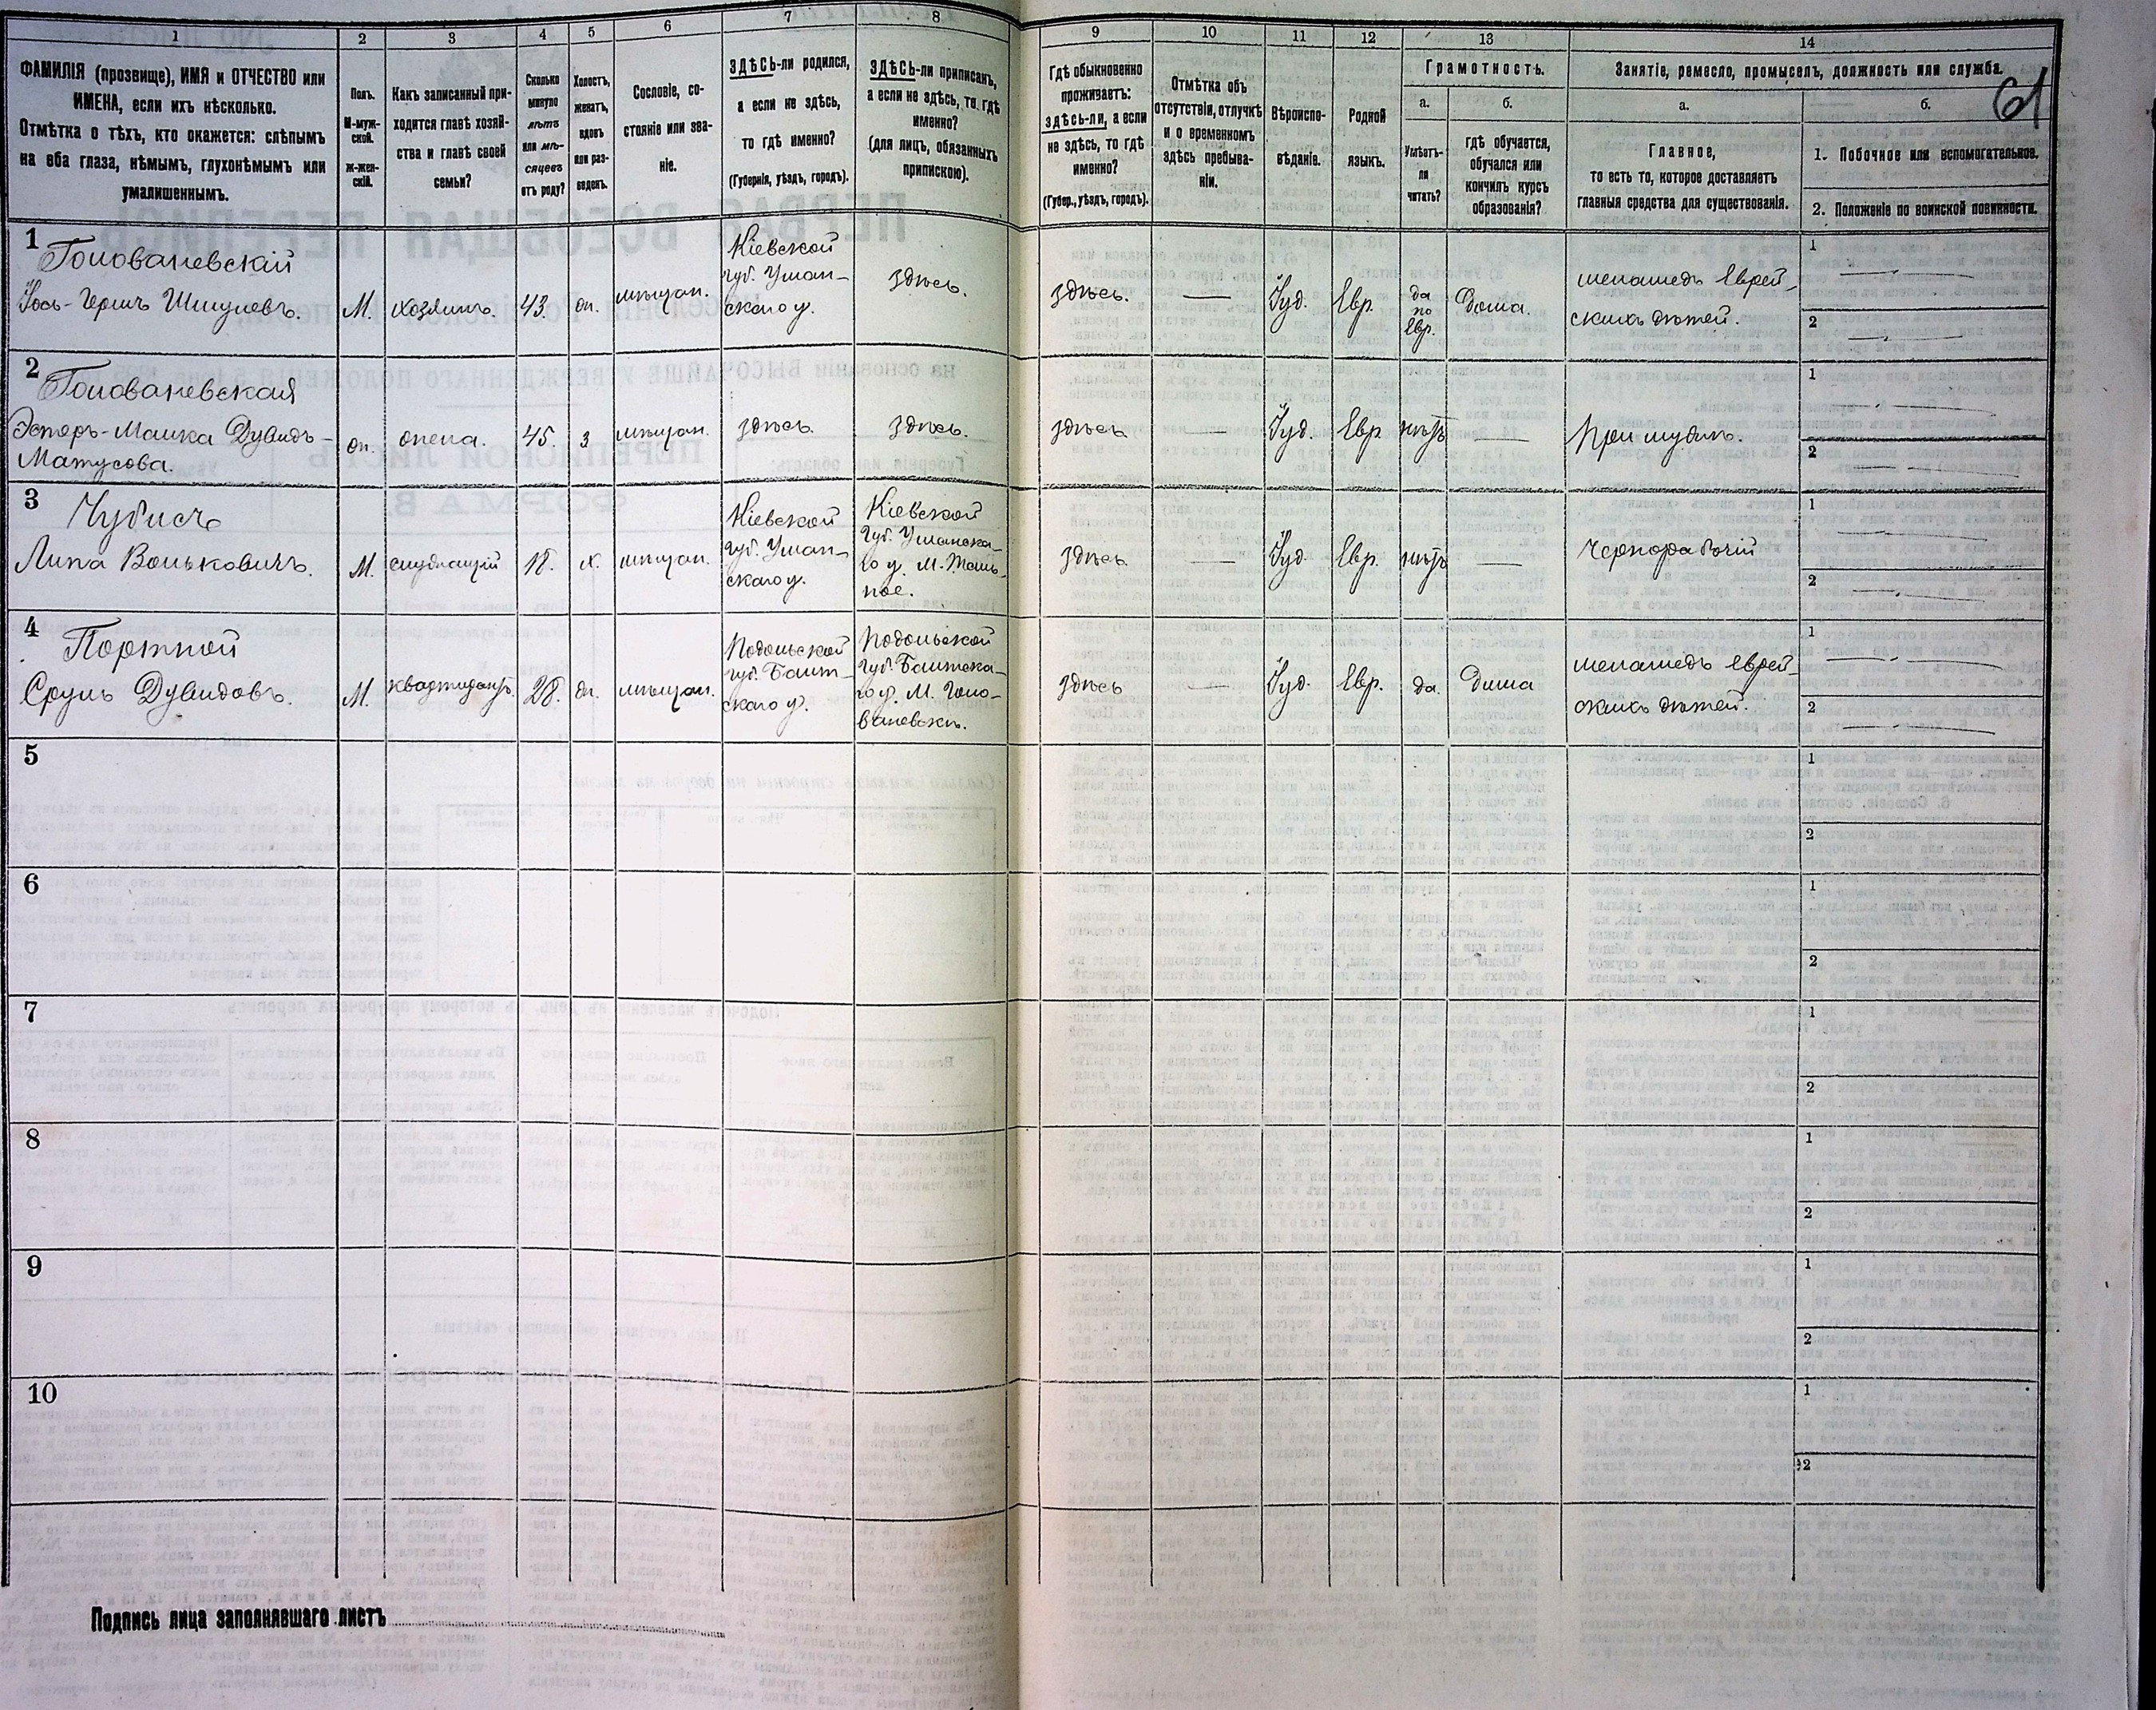 1 2 3 4 5 6 7 8
ФАМИЛІЯ (прозвище), ИМЯ и ОТЧЕСТВО или
ИМЕНА, если ихъ нѣсколько.
Отмѣтка о тѣхъ, кто окажется: слѣпымъ
на оба глаза, нѣмымъ, глухонѣмымъ или
умалишеннымъ.
Полъ.
М-муж-
ской.
Ж-жен-
скій.
Какъ записанный при-
ходится главѣ хозяй-
ства и главѣ своей
семьи?
Сколько
минуло
лѣтъ
или мѣ-
сяцевъ
отъ роду?
Холостъ,
женатъ,
вдовъ
или раз-
веденъ.
Сословіе, со-
стояніе или зва-
ніе.
ЗДѢСЬ-ли родился,
а если не здѣсь,
то гдѣ именно?
(Губернія, уѣздъ, городъ).
ЗДѢСЬ-ли приписанъ,
а если не здѣсь, то гдѣ
именно?
(для лицъ, обязанныхъ
припискою).
9 10 11 12 13 14
Гдѣ обыкновенно
проживаетъ:
здѣсь-ли, а если
не здѣсь, то гдѣ
именно?
(Губер., уѣздъ, городъ).
Отмѣтка объ
отсутствіи, отлучкѣ
и о временномъ
здѣсь пребыва-
ніи.
Вѣроиспо-
вѣданіе.
Родной
языкъ.
Грамотность.
а. б.
Умѣетъ-
ли
читать?
гдѣ обучается,
обучался или
кончилъ курсъ
образованія?
Занятіе, ремесло, промыселъ, должность или служба.
61
а. б.
Главное,
то есть то, которое доставляетъ
главныя средства для существованія.
1. Побочное или вспомогательное.
2. Положеніе по воинской повинности.
1
Голованевскій
Іось-Гершъ Шмулевъ.
М.
хозяинъ.
43.
жн.
мѣщан.
Кіевской
губ. Уман-
скаго у.
здѣсь.
здѣсь.
—
Іуд.
Евр.
да
по
Евр.
Дома.
меламедъ Еврей-
скихъ дѣтей.
1
2
2
Голованевская
Эстеръ-Малка Дувидъ-
Матусова.
жн.
жена.
45.
з
мѣщан.
здѣсь.
здѣсь.
здѣсь
—
Іуд.
Евр
нѣтъ
—
при мужѣ.
1
2
3
Чубисъ
Липа Вольковичъ.
М.
служащій
18.
х.
мѣщан.
Кіевской
губ. Уман-
скаго у.
Кіевской
губ. Уманска-
го у. М. Таль-
ное.
здѣсь
—
Іуд.
Евр.
нѣтъ
—
чернорабочій
1
2
4
Портной
Сруль Дувидовъ.
М.
квартирантъ.
28.
жн.
мѣщан.
Подольской
губ. Балт-
скаго у.
Подольской
губ. Балтска-
го у. М. Голо-
ваневскъ.
здѣсь
—
Іуд.
Евр.
да.
Дома
меламедъ еврей-
скихъ дѣтей.
1
2
5
1
2
6
1
2
7
1
2
8
1
2
9
1
2
10
1
2
Подпись лица заполнявшаго листъ